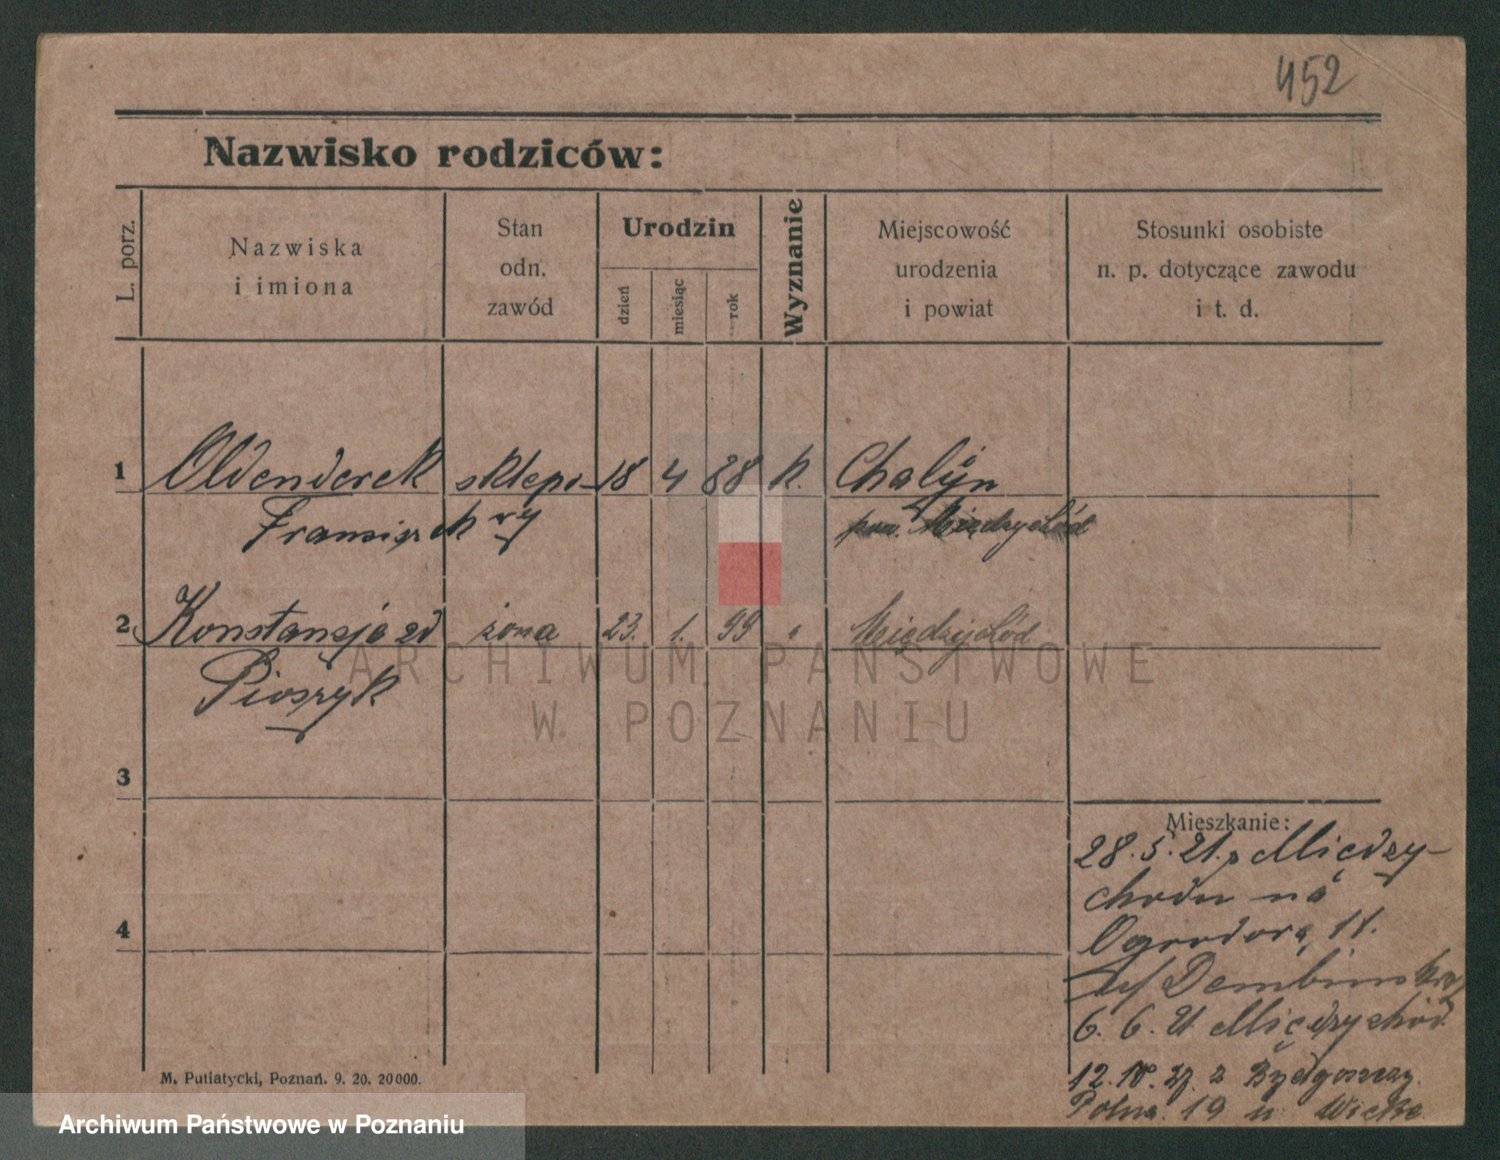 452
Nazwisko rodziców:
L. porz.
Nazwiska
i imiona
Stan
odn.
zawód
Urodzin
dzień
miesiąc
rok
Wyznanie
Miejscowość
urodzenia
i powiat
Stosunki osobiste
n. p. dotyczące zawodu
i t. d.
1 Oldenderek sklepo- 18 4 88 k. Chalin
ry pow. Międzychód
2 Konstancja zd żona 23. 1. 99 " Międzychód
Pioszyk
3
4
Mieszkanie:
28.5.21. z Między-
chodu na
11.
6. 6. 21 Międzychód
12. 10. z Bydgoszczy
Polna 19 u
M. Putiatycki, Poznań. 9. 20. 20000.
ARCHIWUM PAŃSTWOWE
W POZNANIU
Archiwum Państwowe w Poznaniu